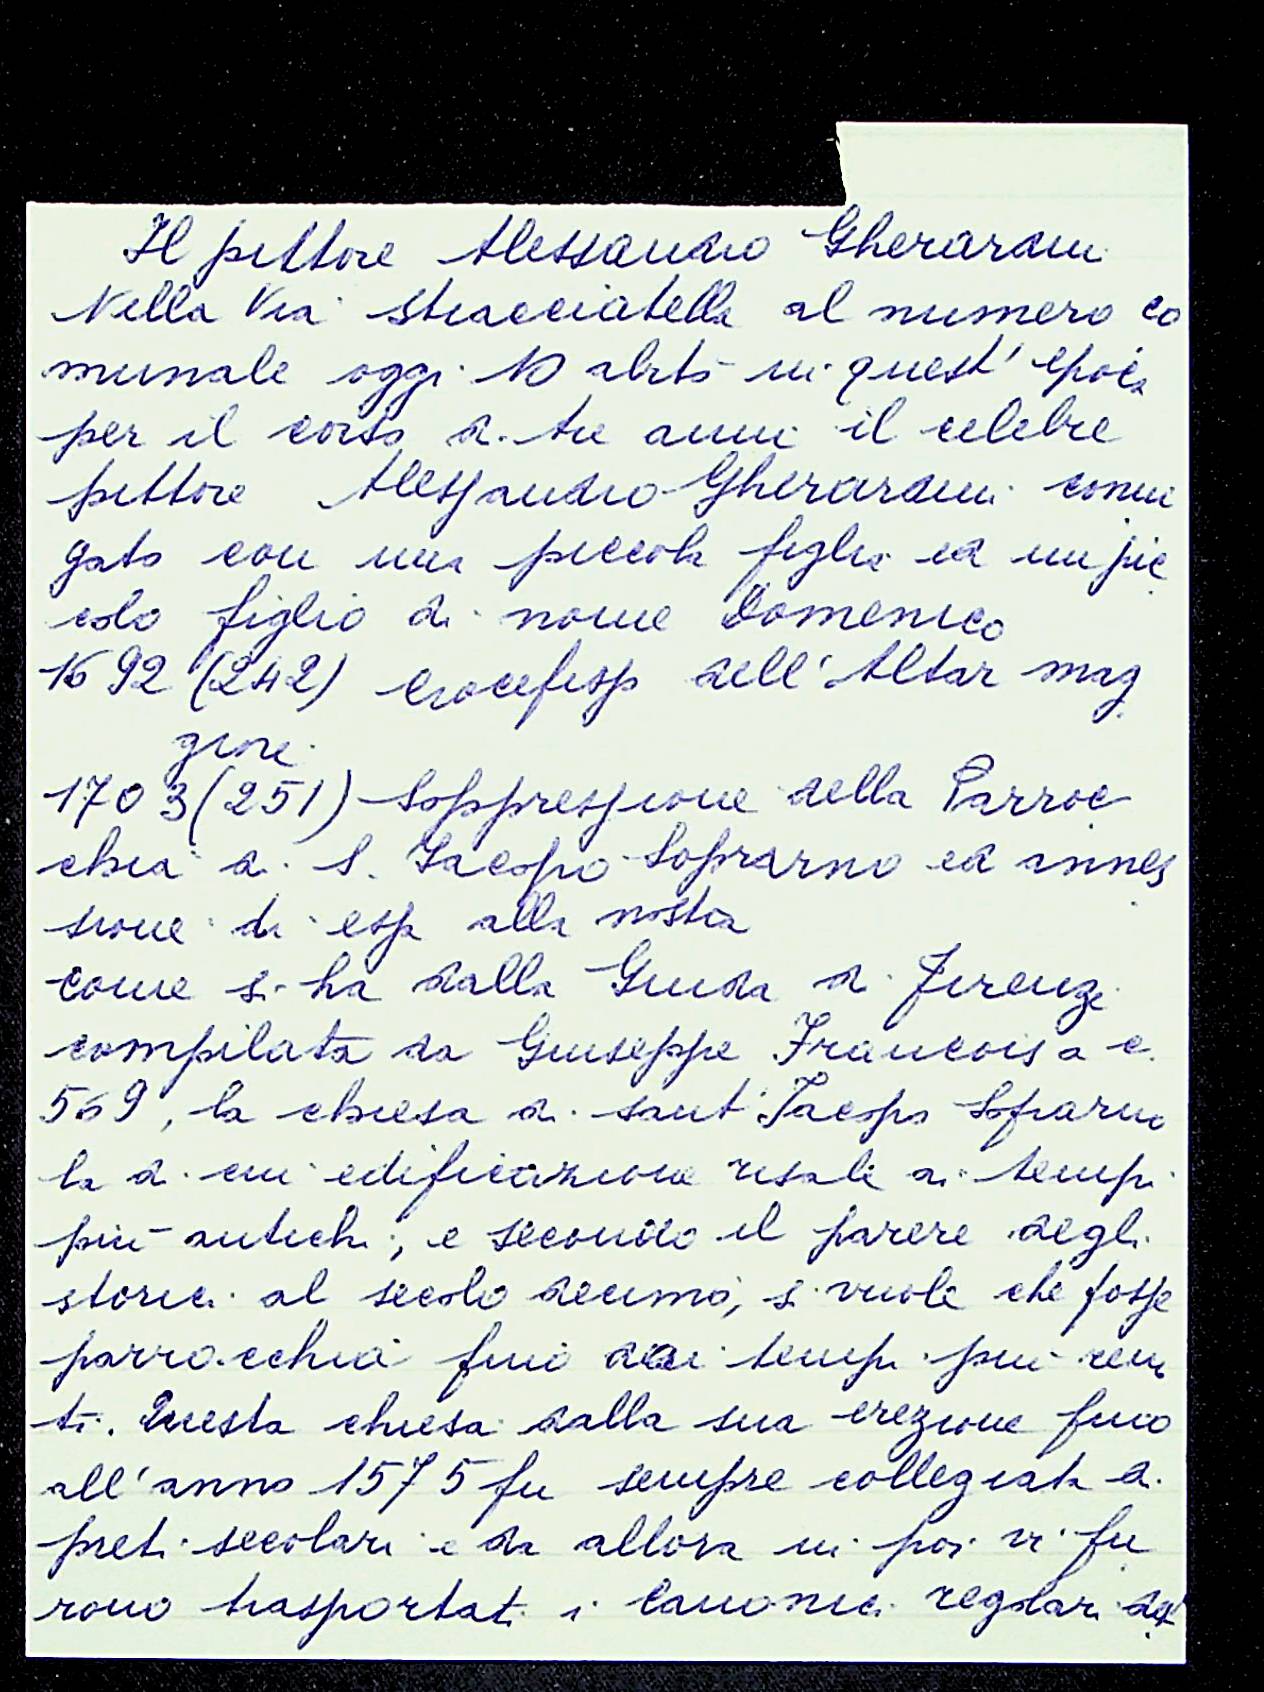 Il pittore Alessandro Gherardini
Nella Via Stracciatella al numero co
munale oggi 10 abitò in quest'epoca
per il corso di tre anni il celebre
pittore Alessandro Gherardini coniu
gato con una piccola figlia ed un pic
colo figlio di nome Domenico
1692 (242) Crocefisso dell'Altar mag
giore
1703 (251) Soppressione della Parroc
chia di S. Jacopo Soprarno ed annes
sione di essa alla nostra
come si ha dalla Guida di Firenze
compilata da Giuseppe Francois a c.
569, la chiesa di sant'Jacopo Soprarno
la di cui edificazione risale ai tempi
più antichi, e secondo il parere degli
storici al secolo decimo, si vuole che fosse
parrocchia fino dai tempi più remo
ti. Questa chiesa dalla sua erezione fino
all'anno 1575 fu sempre collegiata di
preti secolari e da allora in poi vi fu
rono trasportati i Canonici regolari del